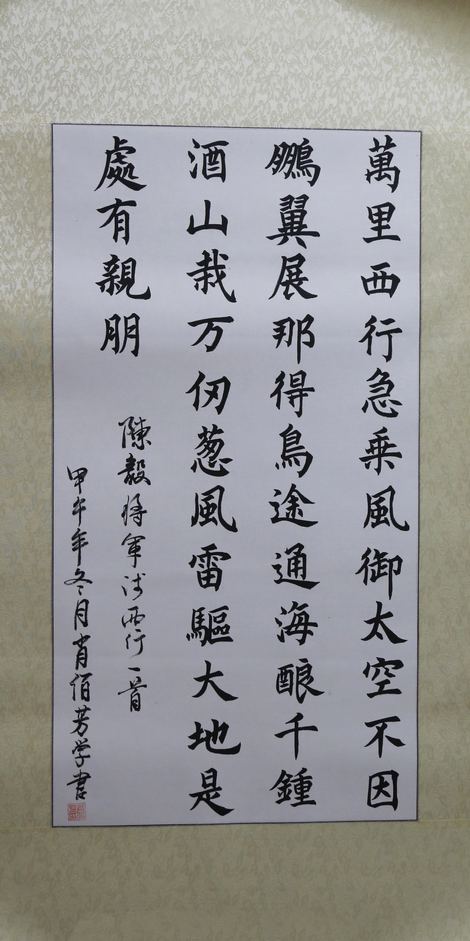 萬里西行急乘風御太空不因
鵬翼展那得鳥途通海酿千鍾
酒山栽万仞葱風雷驅大地是
處有親朋
陳毅将軍诗西行一首
甲午年冬月肖佰芳学書